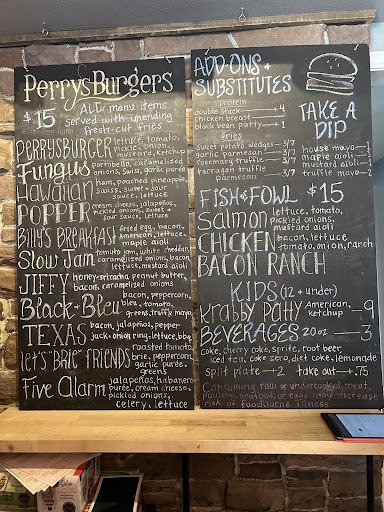 Perrys Burgers
$15 ALL menu items
served with unending
fresh-cut fries
PERRYSBURGER lettuce, tomato,
pickled onion,
mustard, ketchup
Fungus portobella, caramelized
onions, swiss, garlic purée
Hawaiian ham, roasted pineapple,
swiss, sweet + sour
sauce, lettuce
POPPER cream cheese, jalapeños,
pickled onions, bacon,
sour sauce, lettuce
Billy's BREAKFAST fried egg, bacon,
American, lettuce,
maple aioli
Slow Jam tomato jam, white cheddar,
caramelized onions, bacon,
lettuce, mustard aioli
JIFFY honey-sriracha peanut butter,
bacon, caramelized onions
Black-Bleu bacon, peppercorn,
bleu, tomato,
greens, truffle mayo
TEXAS bacon, jalapeños, pepper
jack, onion ring, lettuce, bbq
roasted tomato,
let's "BRIE" FRIENDS brie, peppercorn,
garlic purée,
greens
Five Alarm jalapeños, habanero
purée, cream cheese,
pickled onions,
celery, lettuce
ADD-ONS +
SUBSTITUTES
Protein
double stack 4
chicken breast 1
black bean patty 1
Fries
Sweet potato wedges 3/7
garlic parmesan 3/7
rosemary truffle 3/7
tarragon truffle 3/7
parmesan
TAKE A
DIP
house mayo 1
maple aioli 1
mustard aioli 1
truffle mayo 2
FISH & FOWL $15
Salmon lettuce, tomato,
pickled onions,
mustard aioli
CHICKEN bacon, lettuce
BACON RANCH tomato, onion, ranch
KIDS (12 + under)
Krabby Patty American,
ketchup 9
BEVERAGES 20oz 3
coke, cherry coke, sprite, root beer,
iced tea, coke zero, diet coke, lemonade
split plate 2 take out +.75
Consuming raw or undercooked meat,
poultry, seafood, or eggs may increase
risk of foodborne illness